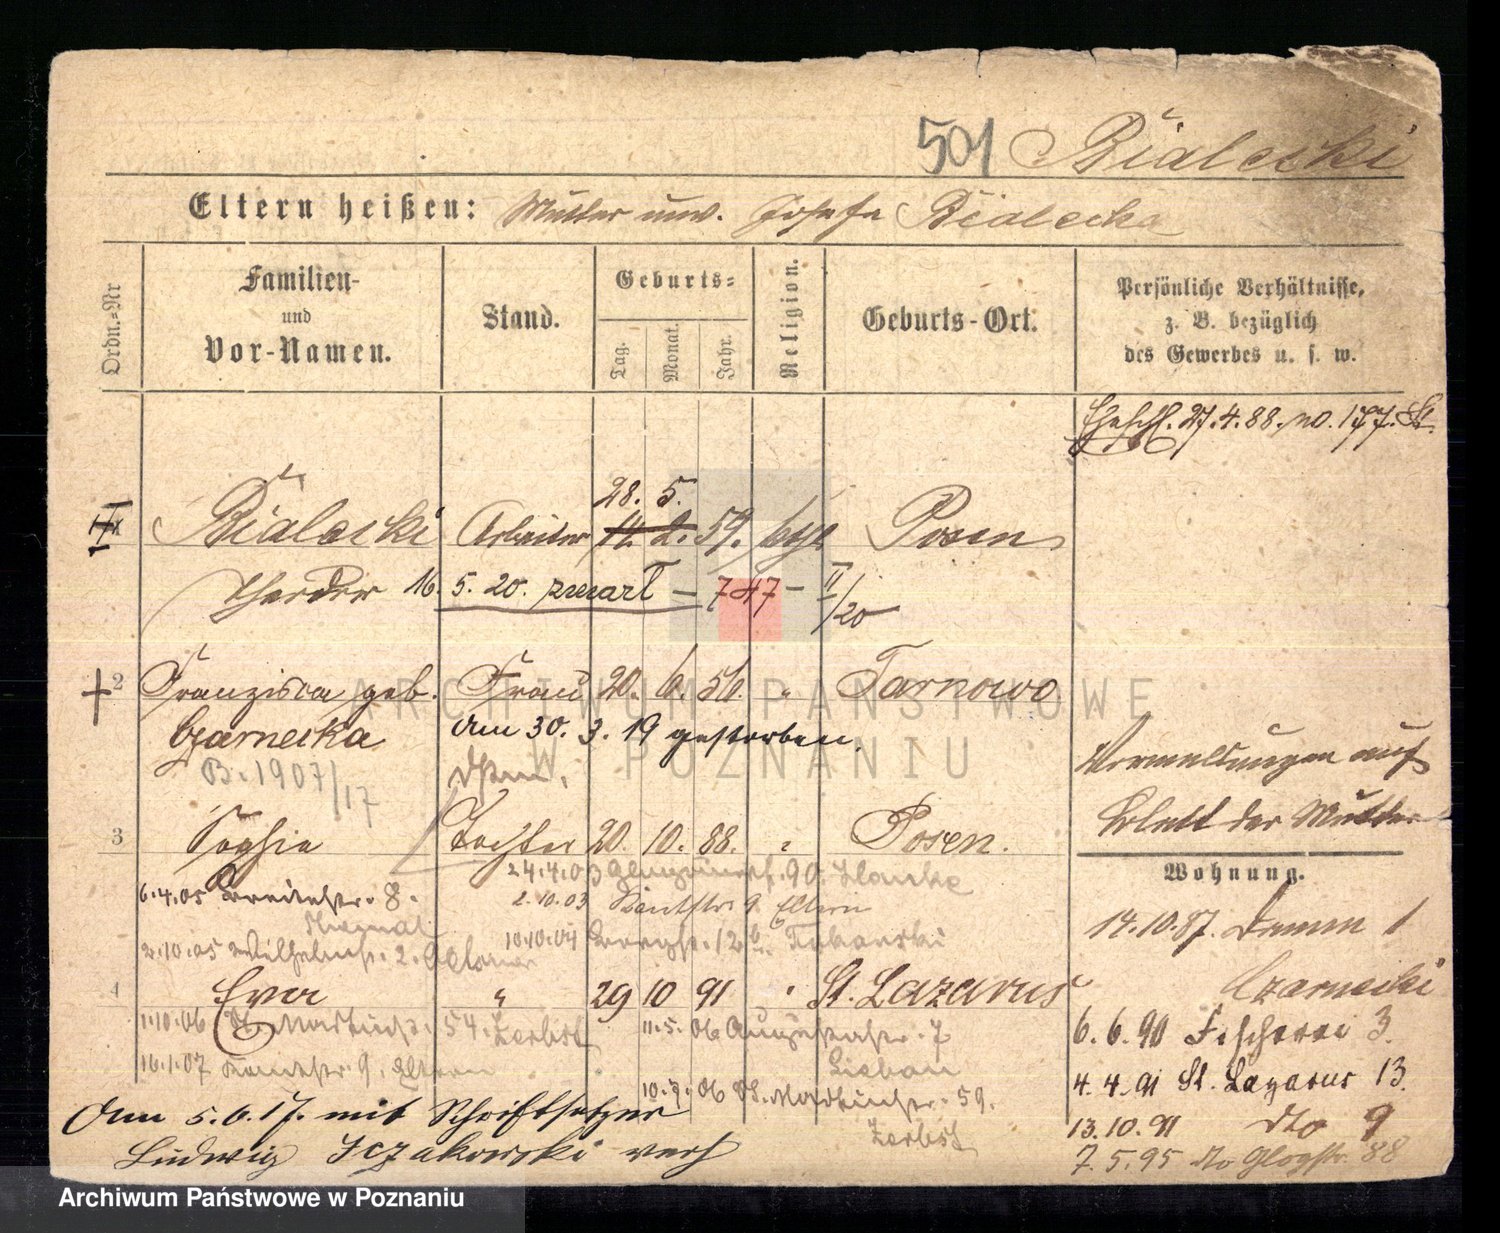 501 Bialecki
Eltern heißen: Mutter unv. Josefa Bialecka
Ordn.-Nr
Familien-
und
Vor-Namen.
Stand.
Geburts-
Tag.
Monat.
Jahr.
Religion.
Geburts-Ort.
Persönliche Verhältnisse,
z. B. bezüglich
des Gewerbes u. s. w.
Eheschl. 27.4.88. no. 177. St.
28. 5.
Bialecki Arbeiter 14. 2. 59. kath Posen
Theodor 16. 5. 20. zmarł – 747 – II/20
2 Franziska geb. Frau 20. 6. 56. " Tarnowo
Czarnecka Am 30. 3. 19 gestorben.
B. 1907/17
Vermeldungen auf
Blatt der Mutter
3 Sophie Tochter 20. 10. 88. " Posen.
24.4.03 90. Hanke
6.4.05 Breitestr. 8. 2.10.03 Kantstr. 9 Eltern
2.10.05 Wilhelmstr. 2. 10.10.04 Bergstr. 12b.
4 Eva " 29 10 91 " St. Lazarus
1.10.06 St. Martinstr. 54. Zerbst 11.5.06 Augustastr. 7
Liebau
16.1.07 Kantstr. 9. Eltern
10.7.06 St. Martinstr. 59.
Zerbst
Am 5.6.17. mit Schriftsetzer
Ludwig verh
Wohnung.
14.10.87. Damm 1
Czarnecki
6.6.90 Fischerei 3.
4.4.91 St. Lazarus 13.
13.10.91 dto 9
7.5.95 do Glogstr. 88
ARCHIWUM PAŃSTWOWE
W POZNANIU
Archiwum Państwowe w Poznaniu